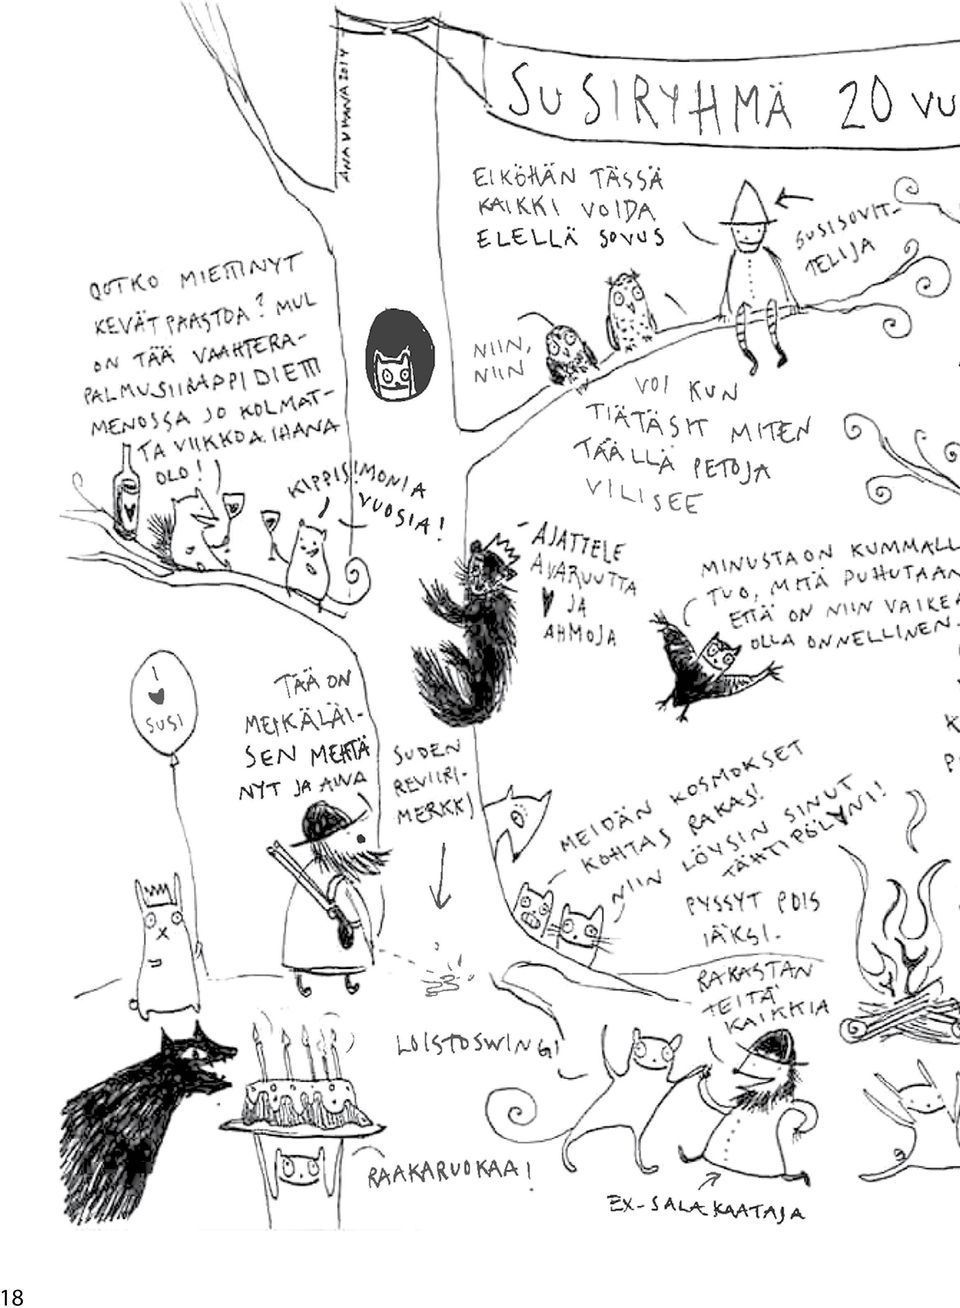 SUSIRYHMÄ 20 VU
ANA VIHANA 2014
EIKÖHÄN TÄSSÄ
KAIKKI VOIDA
ELELLÄ SOVUS
SUSISOVIT-
TELIJA
OOTKO MIETTINYT
KEVÄT PAASTOA? MUL
ON TÄÄ VAAHTERA-
PALMUSIIRAPPI DIETTI
MENOSSA JO KOLMAT-
TA VIIKKOA. IHANA
OLO!
NIIN,
NIIN
VOI KUN
TIÄTÄSIT MITEN
TÄÄLLÄ PETOJA
VILISEE
KIPPIS! MONIA
VUOSIA!
AJATTELE
AVARUUTTA
JA
AHMOJA
MINUSTA ON KUMMALL
TUO, MITÄ PUHUTAAN
ETTÄ ON NIIN VAIKEA
OLLA ONNELLINEN.
I
SUSI
TÄÄ ON
MEIKÄLÄI-
SEN MEHTÄ
NYT JA AINA
SUDEN
REVIIRI-
MERKKI
K
P
MEIDÄN KOSMOKSET
KOHTAS RAKAS!
NIIN LÖYSIN SINUT
TÄHTIPÖLYNI!
PYSSYT POIS
IÄKSI.
RAKASTAN
TEITÄ
KAIKKIA
LOISTOSWINGI
RAAKARUOKAA!
EX-SALAKAATAJA
18